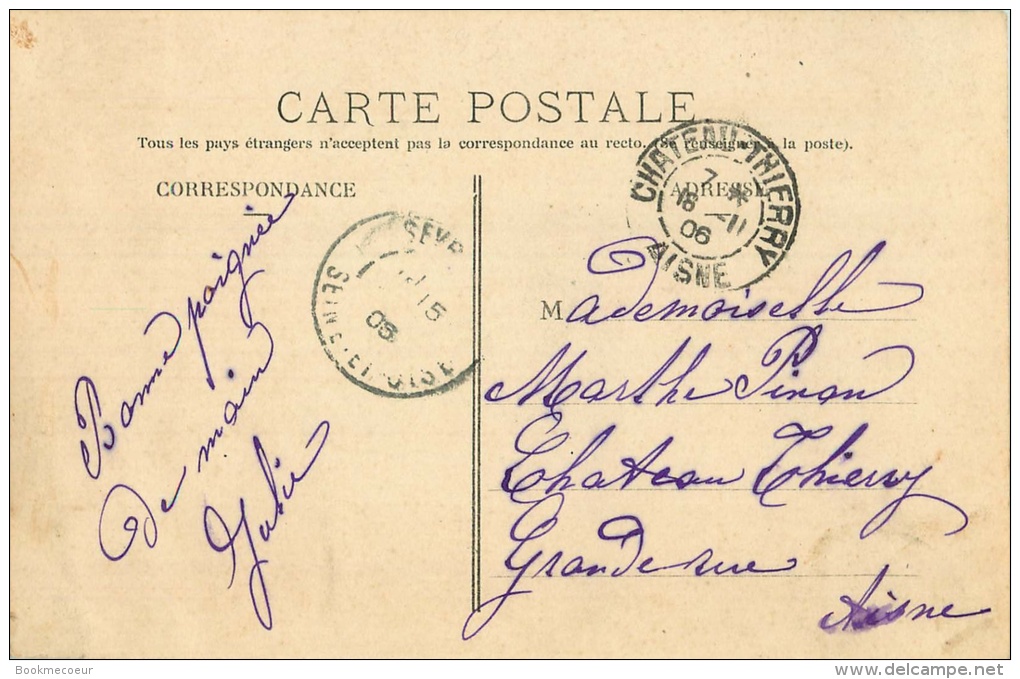 CARTE POSTALE
Tous les pays étrangers n'acceptent pas la correspondance au recto. (Se renseigner à la poste).
CORRESPONDANCE
ADRESSE
CHATEAU-THIERRY
7
18 -11
06
AISNE
SEINE-ET-OISE
15
Bonne poignée
de main
Mademoiselle
Marthe Pinon
Chateau Thierry
Grande rue
Aisne
Bookmecoeur
www.delcampe.net